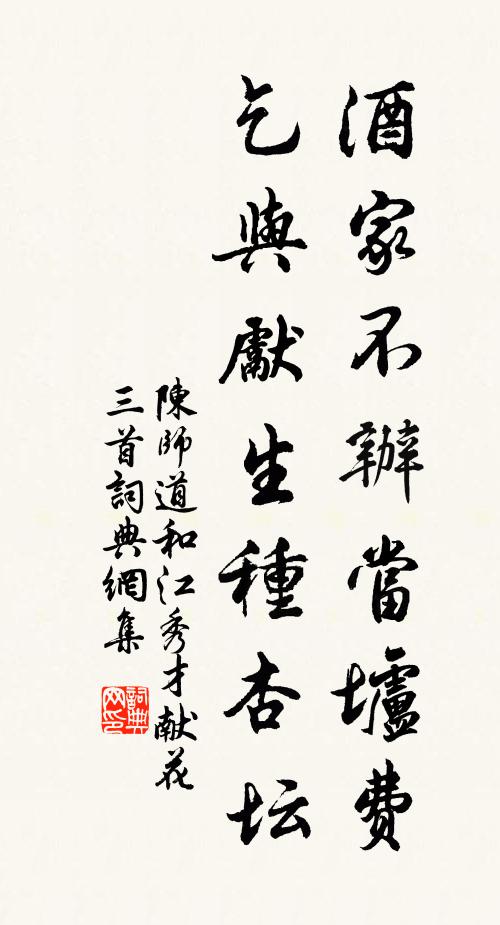 酒家不辦當壚費
乞與獻生種杏坛
陳師道和江秀才献花
三首詞典網集
詞典网印